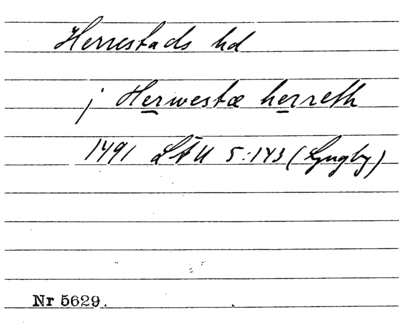 Herrestads hd
j Herwestæ herreth
1491 LÄU 5:143 (Ljugby)
Nr 5629.